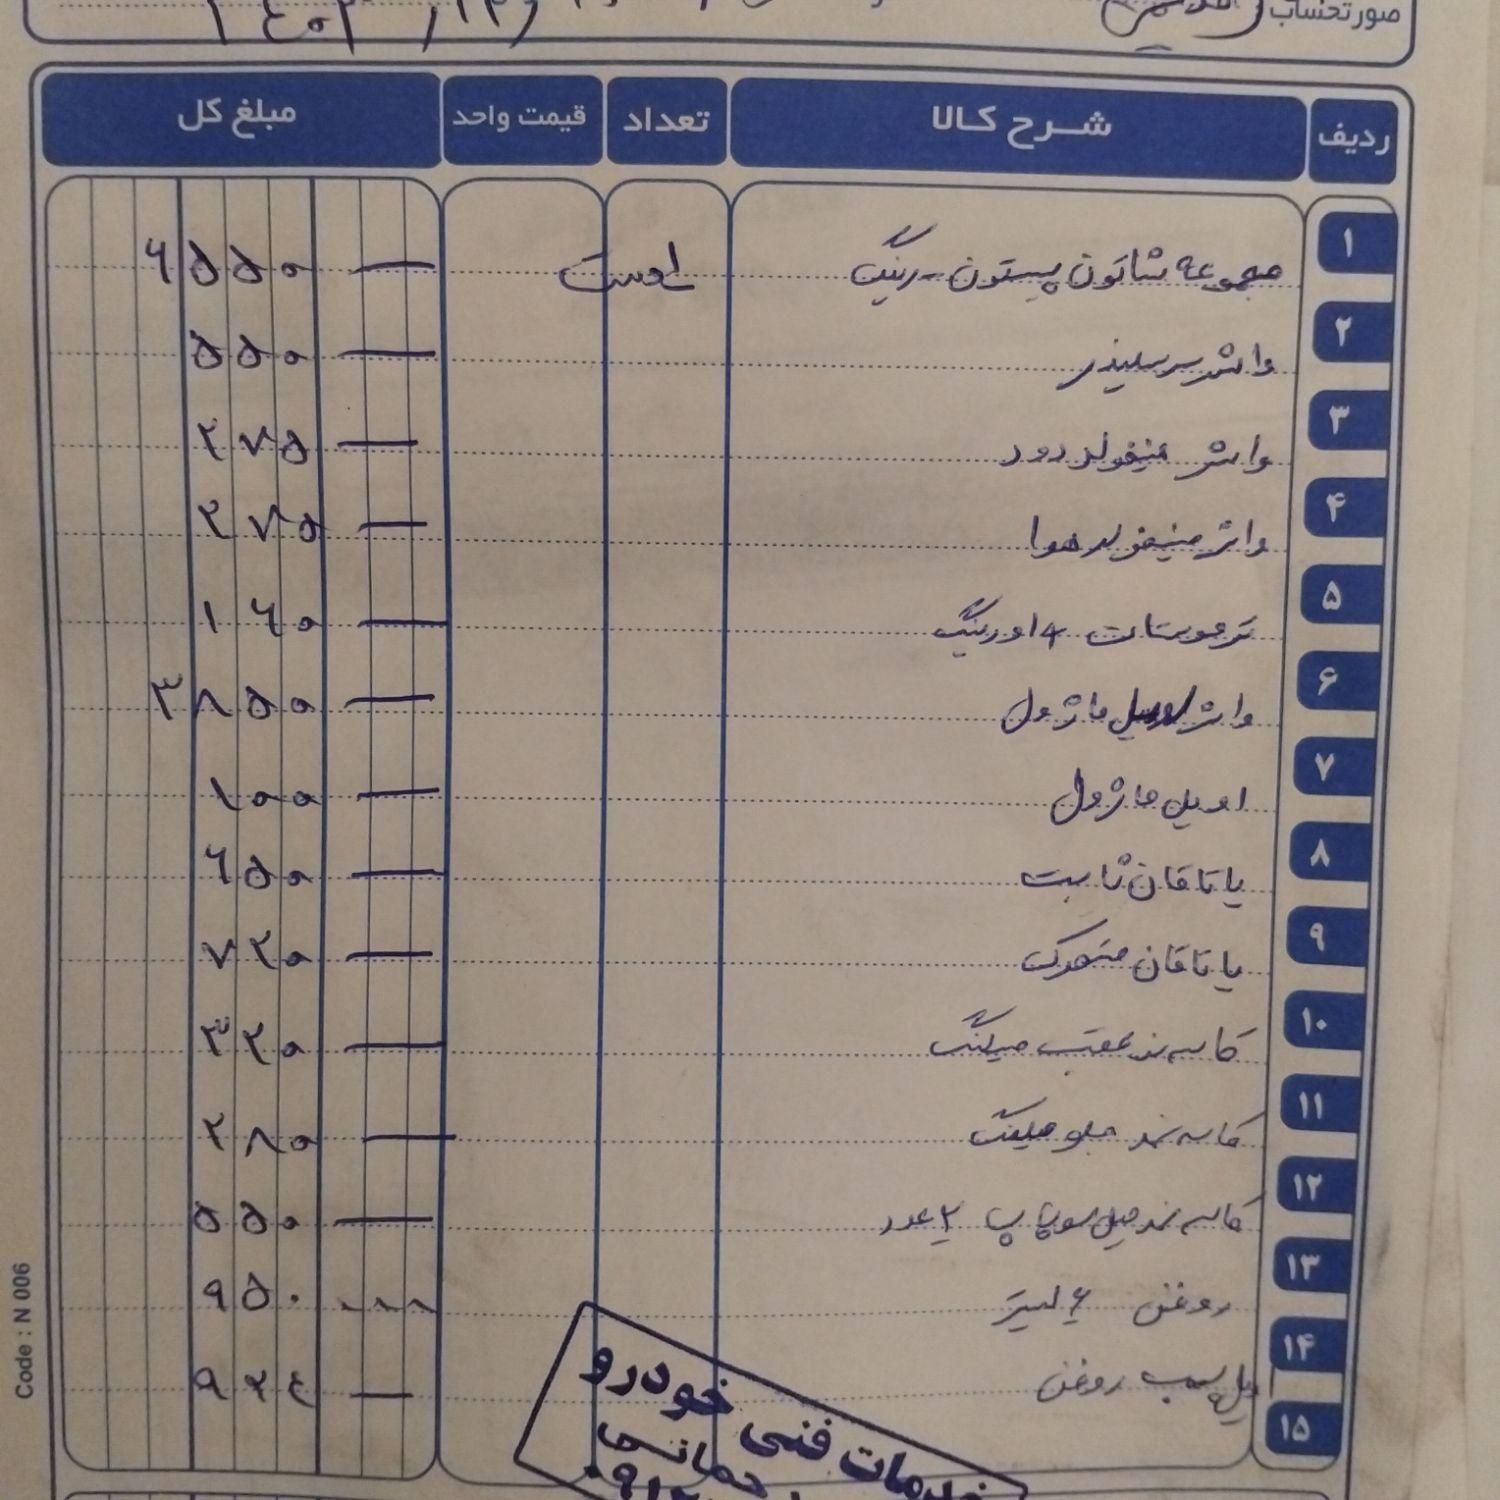 صورتحساب
ردیف شرح کالا تعداد قیمت واحد مبلغ کل
۱ مجموعه شاتون پیستون-رینگ ۱ دست ۶۵۵۰ —
۲ واشر سرسیلندر ۵۵۰ —
۳ واشر منیفولد دود ۲۷۵ —
۴ واشر منیفولد هوا ۲۷۵ —
۵ ترموستات + اورینگ ۱۶۰ —
۶ واشر اویل ماژول ۳۸۵۰ —
۷ اویل ماژول ۱۰۰ —
۸ یاتاقان ثابت ۶۵۰ —
۹ یاتاقان متحرک ۷۲۰ —
۱۰ کاسه نمد عقب میلنگ ۳۲۰ —
۱۱ کاسه نمد جلو میلنگ ۲۸۰ —
۱۲ کاسه نمد میل سوپاپ ۲ عدد ۵۵۰ —
۱۳ روغن ۶ لیتر ۹۵۰
۱۴ اویل پمپ روغن ۹۲۴ —
۱۵
خدمات فنی خودرو
Code : N 006